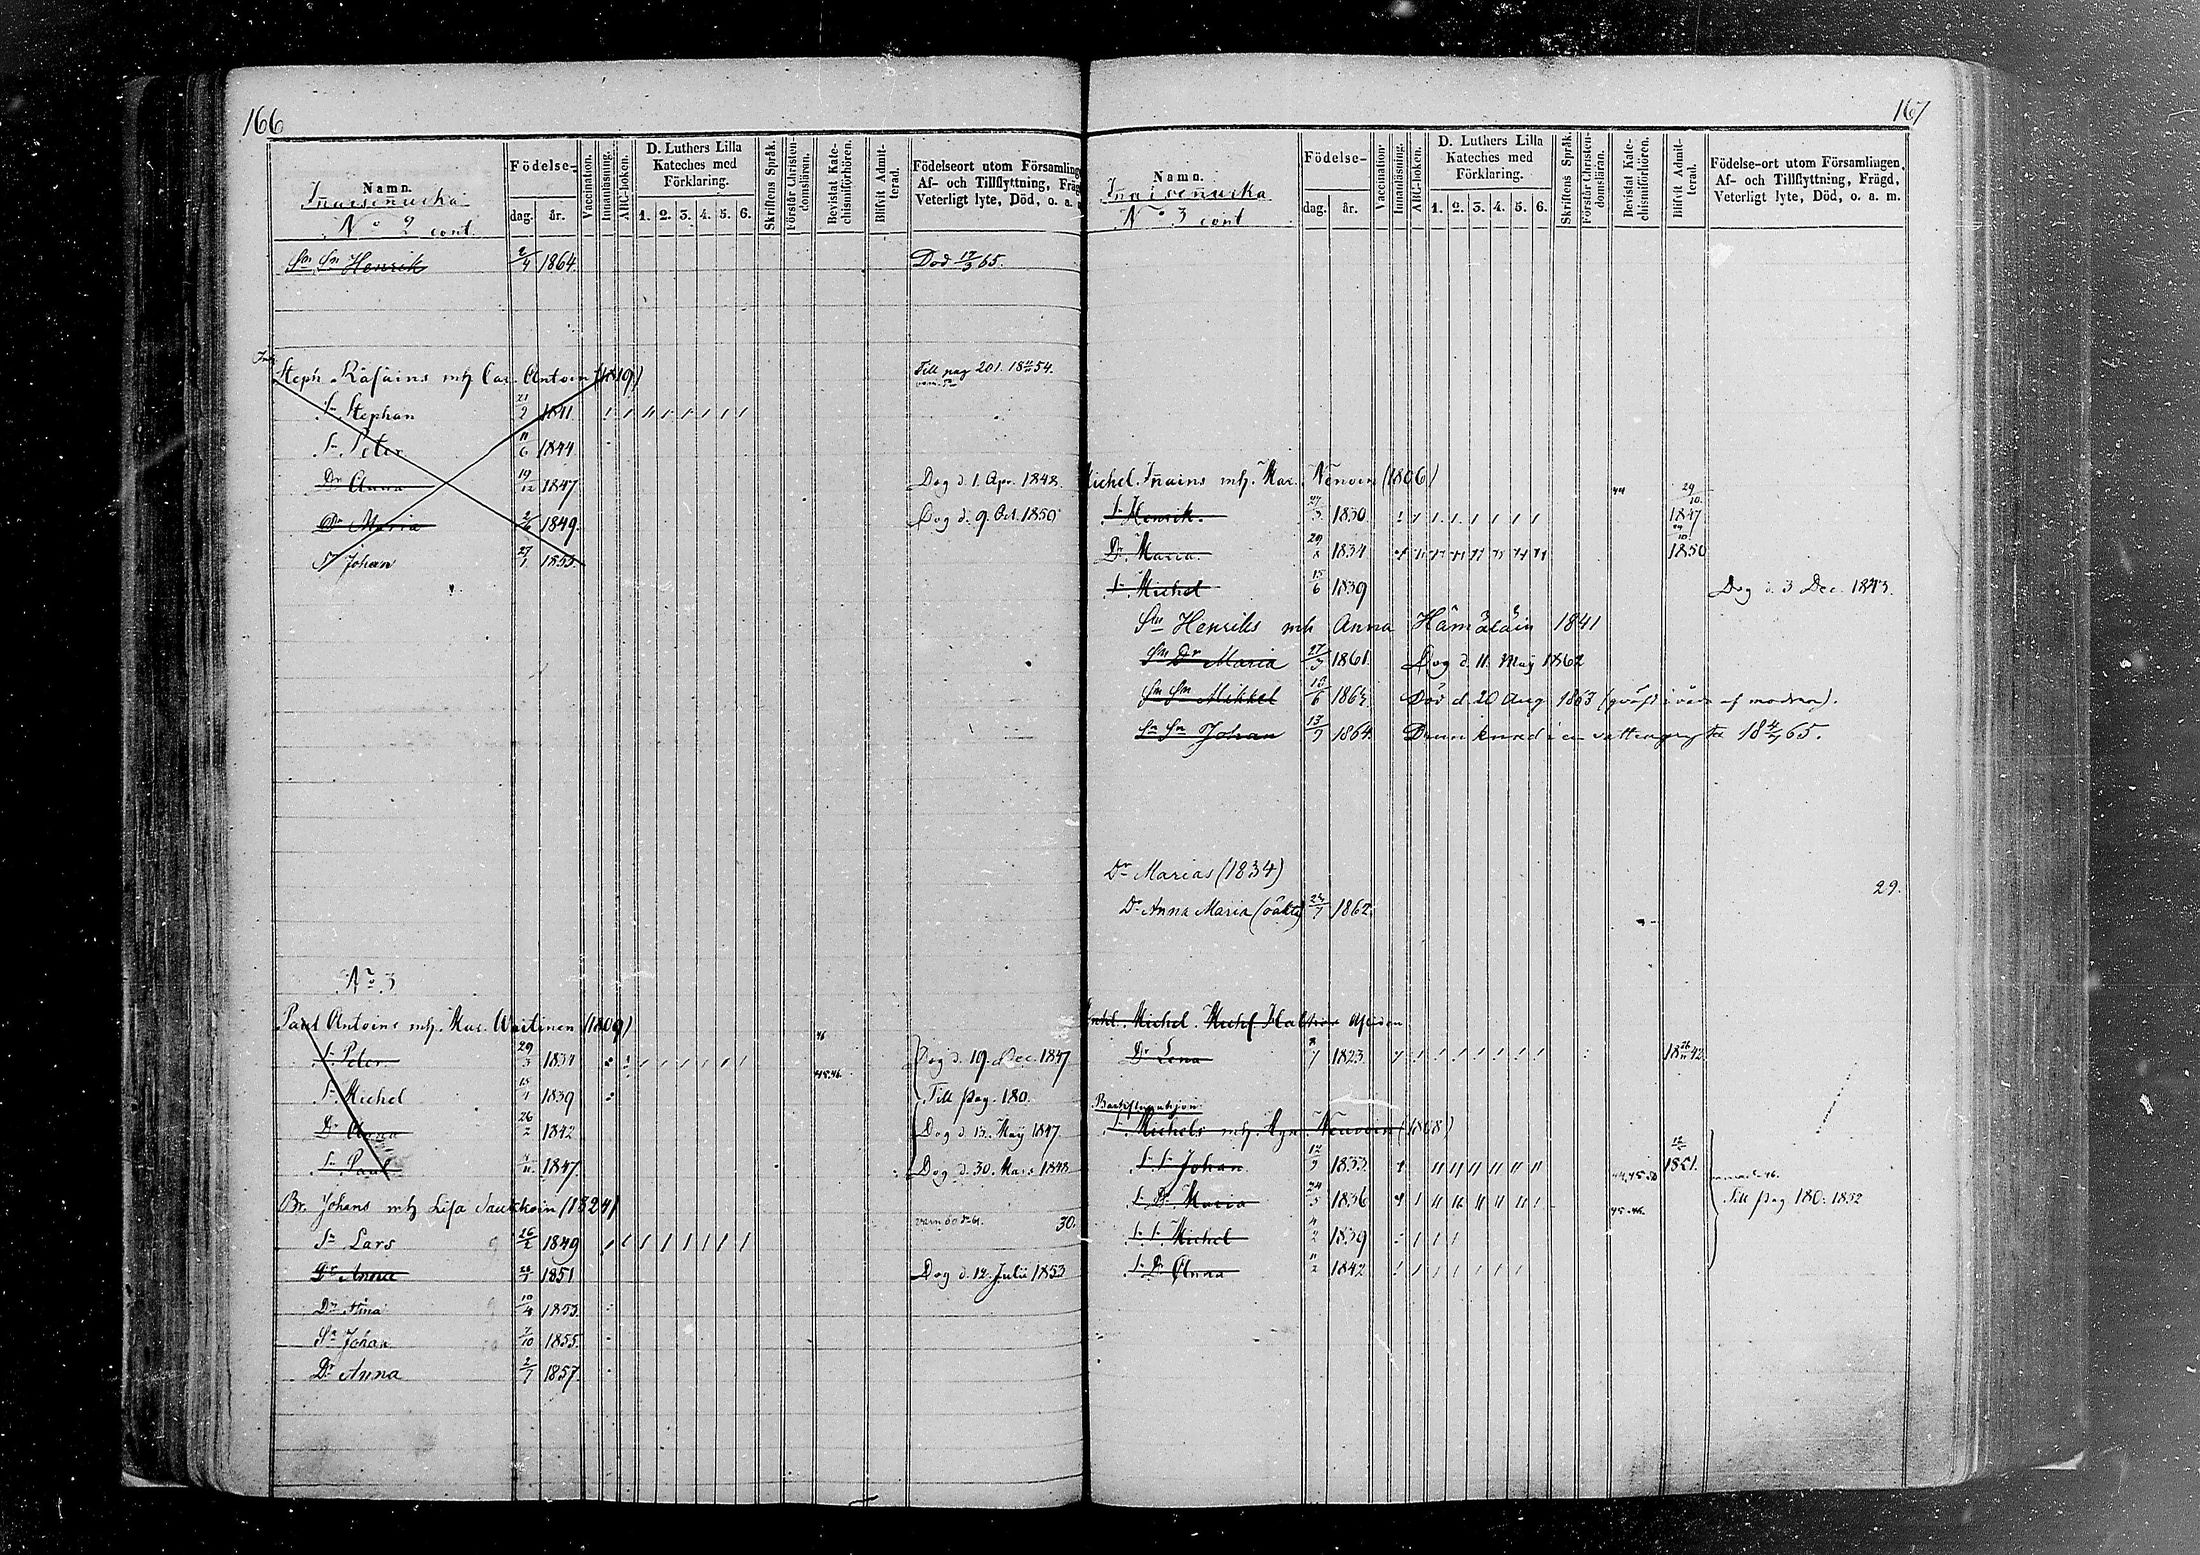 166
Namn.
Födelse-
dag. år.
Vaccination.
Innanläsning.
ABC-boken.
D. Luthers Lilla Kateches med Förklaring.
1. 2. 3. 4. 5. 6.
Skriftens Språk.
Förstår Christendomsläran.
Bevistat Katechismiförhören.
Blifvit Admitterad.
Födelseort utom Församling
Af- och Tillflyttning, Fräg
Veterligt lyte, Död, o. a.
No 2 cont.
Sn Sn Henrik 2/4 1864. Död 12/3 65.
Steph. Räsäins mh Car. Antoin (1819) Till pag 201. 18 54.
Sn Stephan 21/2 1841
Sn Peter 11/6 1844
Dr Anna 19/12 1847 Dog d. 1. Apr. 1848.
Dr Maria 2/6 1849. Dog d. 9. Oct. 1850
Sn Johan 27/1 1853
No 3
Paul Antoins mh. Mar. Waitinen (1809)
46
Sn Peter 29/3 1834 Dog d. 19. Dec. 1847
45.46.
Sn Michel 15/1 1839 Till pag. 180.
Dr Anna 26/2 1842 Dog d. 13. Maij 1847.
Sn Paul 1847. Dog d. 30. Mars 1848
Br. Johans mh Lisa (1824)
30.
Sn Lars 26/2 1849
Dr Anna 1851 Dog d. 12. Julii 1853
Dr Nina 10/4 1853.
Sn Johan 7/10 1855.
Dr Anna 2/7 1857.
167
Namn.
Födelse-
dag. år.
Vaccination
Innanläsning.
ABC-boken.
D. Luthers Lilla Kateches med Förklaring.
1. 2. 3. 4. 5. 6.
Skriftens Språk.
Förstår Christendomsläran.
Bevistat Katechismiförhören.
Blifvit Admitterad.
Födelse-ort utom Församlingen,
Af- och Tillflyttning, Frägd,
Veterligt lyte, Död, o. a. m.
No 3 cont
Michel. Inains mh. Mar. Nenoin (1806)
Sn Henrik. 27/3 1830. 29/10. 1847
Dr Maria 1834 1850
Sn Michel 15/6 1839 Dog d. 3 Dec. 1843.
Sn Henriks mh Anna Hämäläin 1841
Sn Dr Maria 27/3 1861 Dog d. 11. Maij 1862
Sn Sn Mikkel 10/6 1863 Död d. 20 Aug 1863 (qväfd i våda af modren).
Sn Sn Johan 13/7 1864 Drunknad i en vattengryta 18 4/7 65.
Dr Marias (1834)
29.
Dr Anna Maria (oäkta) 1862
Inhl. Michel.
Dr Lena 1823 18 42
Sn Michels mh. Agn. Nenoin (1808)
Sn Sn Johan 12/9 1833. 44.45.50 1851.
Sn Dr Maria 24/5 1836 Till pag 180. 1852
45.46.
Sn Sn Michel 4/2 1839
Sn Dr Anna 11/2 1842